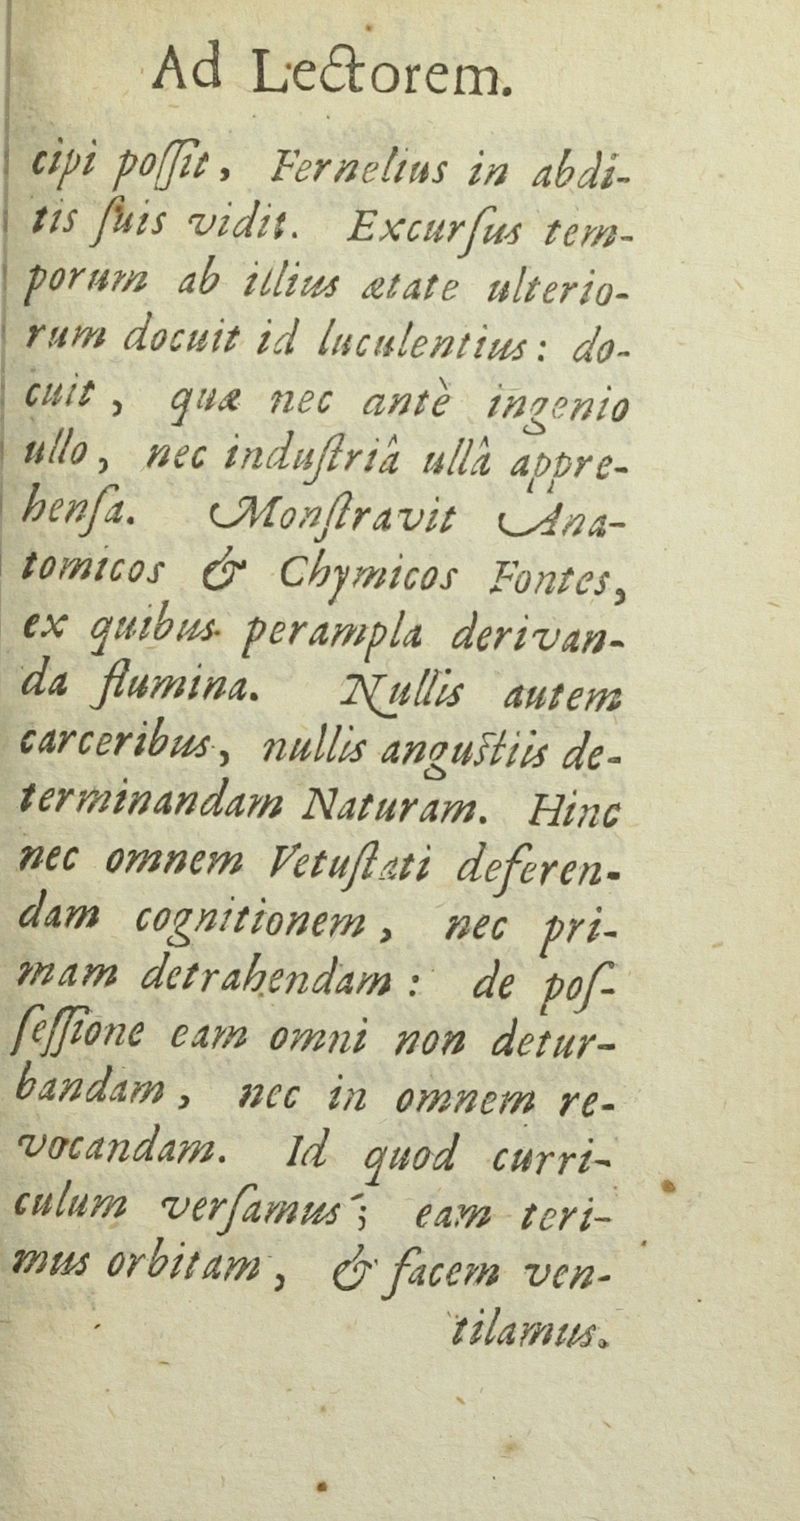 Ad Lectorem.
cipi poſſit, Fernelius in abdi-
tis ſuis vidit. Excurſus tem-
porum ab illius ætate ulterio-
rum docuit id luculentius: do-
cuit, quæ nec antè ingenio
ullo, nec induſtriâ ullâ appre-
henſa. Monſtravit Ana-
tomicos & Chymicos Fontes,
ex quibus perampla derivan-
da flumina. Nullis autem
carceribus, nullis anguſtiis de-
terminandam Naturam. Hinc
nec omnem Vetuſtati deferen-
dam cognitionem, nec pri-
mam detrahendam: de poſ-
ſeſſione eam omni non detur-
bandam, nec in omnem re-
vocandam. Id quod curri-
culum verſamus; eam teri-
mus orbitam, & facem ven-
tilamus.